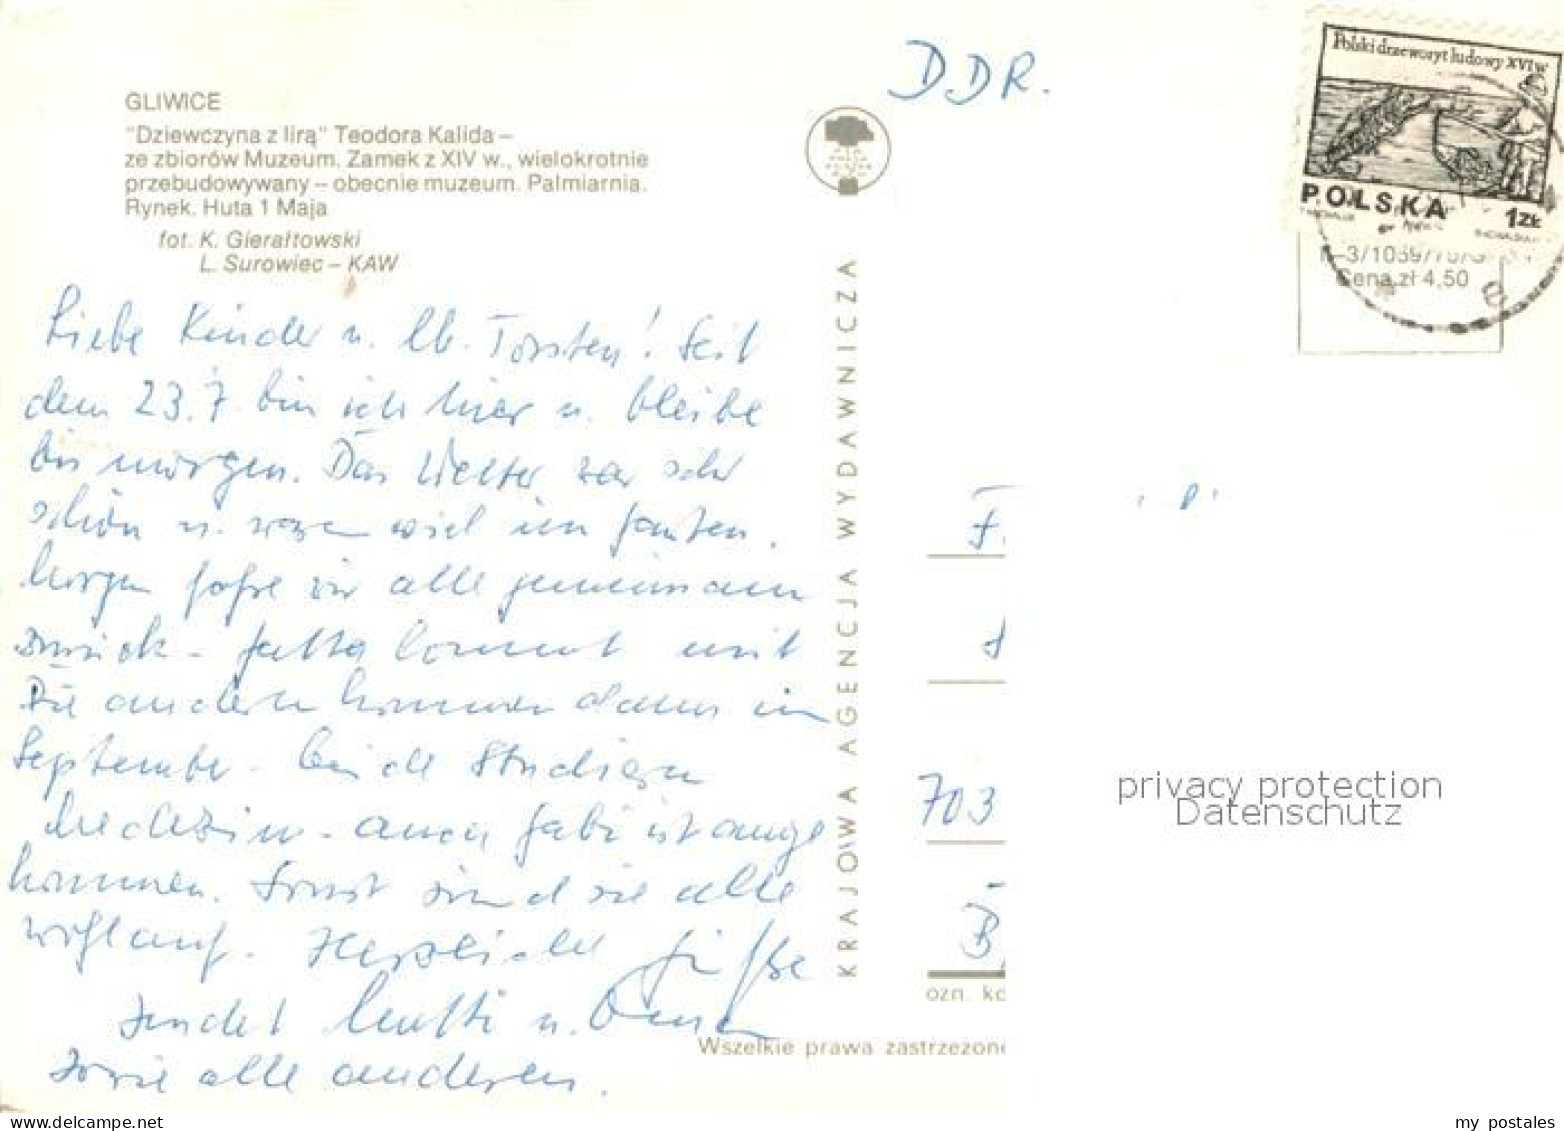 GLIWICE
"Dziewczyna z lirą" Teodora Kalida –
ze zbiorów Muzeum. Zamek z XIV w., wielokrotnie
przebudowywany – obecnie muzeum. Palmiarnia.
Rynek. Huta 1 Maja
fot. K. Gierałtowski
L. Surowiec – KAW
Liebe Kinder u. lb. Torsten! Seit
dem 23.7. bin ich hier u. bleibe
bis morgen. Das Wetter war sehr
schön u. waren viel im Garten.
Morgen wir alle gemeinsam
zurück – kommt mit
Die anderen kommen dann im
September – beide Studieren
Medizin – auch Gabi ist ange
kommen. Sonst sind sie alle
wohlauf. Herzliche Grüße
sendet Mutti u. Oma
sowie alle anderen.
KRAJOWA AGENCJA WYDAWNICZA
DDR.
Polski drzeworyt ludowy XVI w
POLSKA 1 ZŁ
Cena zł 4,50
F
703
B
ozn. ko
Wszelkie prawa zastrzeżone
privacy protection
Datenschutz
www.delcampe.net
my_postales